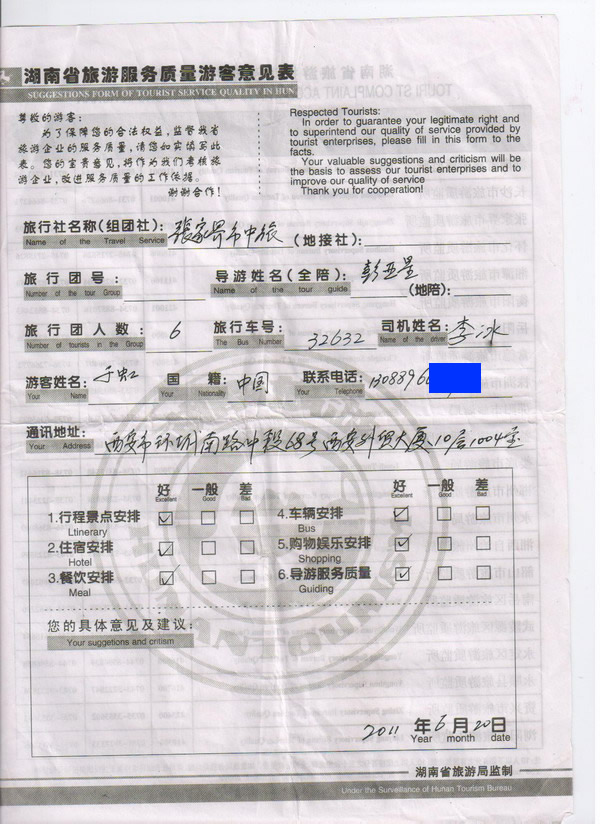 湖南省旅游服务质量游客意见表
SUGGESTIONS FORM OF TOURIST SERVICE QUALITY IN HUN
尊敬的游客：
为了保障您的合法权益，监督我省
旅游企业的服务质量，请您如实填写此
表。您的宝贵意见，将作为我们考核旅
游企业，改进服务质量的工作依据。
谢谢合作！
Respected Tourists:
In order to guarantee your legitimate right and
to superintend our quality of service provided by
tourist enterprises, please fill in this form to the
facts.
Your valuable suggestions and criticism will be
the basis to assess our tourist enterprises and to
improve our quality of service
Thank you for cooperation!
旅行社名称(组团社)：张家界市中旅 (地接社)：
Name of the Travel Service
旅行团号： 导游姓名(全陪)：彭亚星 (地陪)：
Number of the tour Group Name of the tour guide
旅行团人数：6 旅行车号：32632 司机姓名：李冰
Number of tourists in the Group The Bus Number Name of the driver
游客姓名：于虹 国籍：中国 联系电话：1308896
Your Name Your Nationality Your Telephone
通讯地址：西安市环城南路中段68号西安外贸大厦10层1004室
Your Address
好 一般 差 好 一般 差
Excellent Good Bad Excellent Good Bad
1.行程景点安排 4.车辆安排
Ltinerary Bus
2.住宿安排 5.购物娱乐安排
Hotel Shopping
3.餐饮安排 6.导游服务质量
Meal Guiding
您的具体意见及建议：
Your suggetions and critism
2011 年 6 月 20 日
Year month date
湖南省旅游局监制
Under the Surveillance of Hunan Tourism Bureau